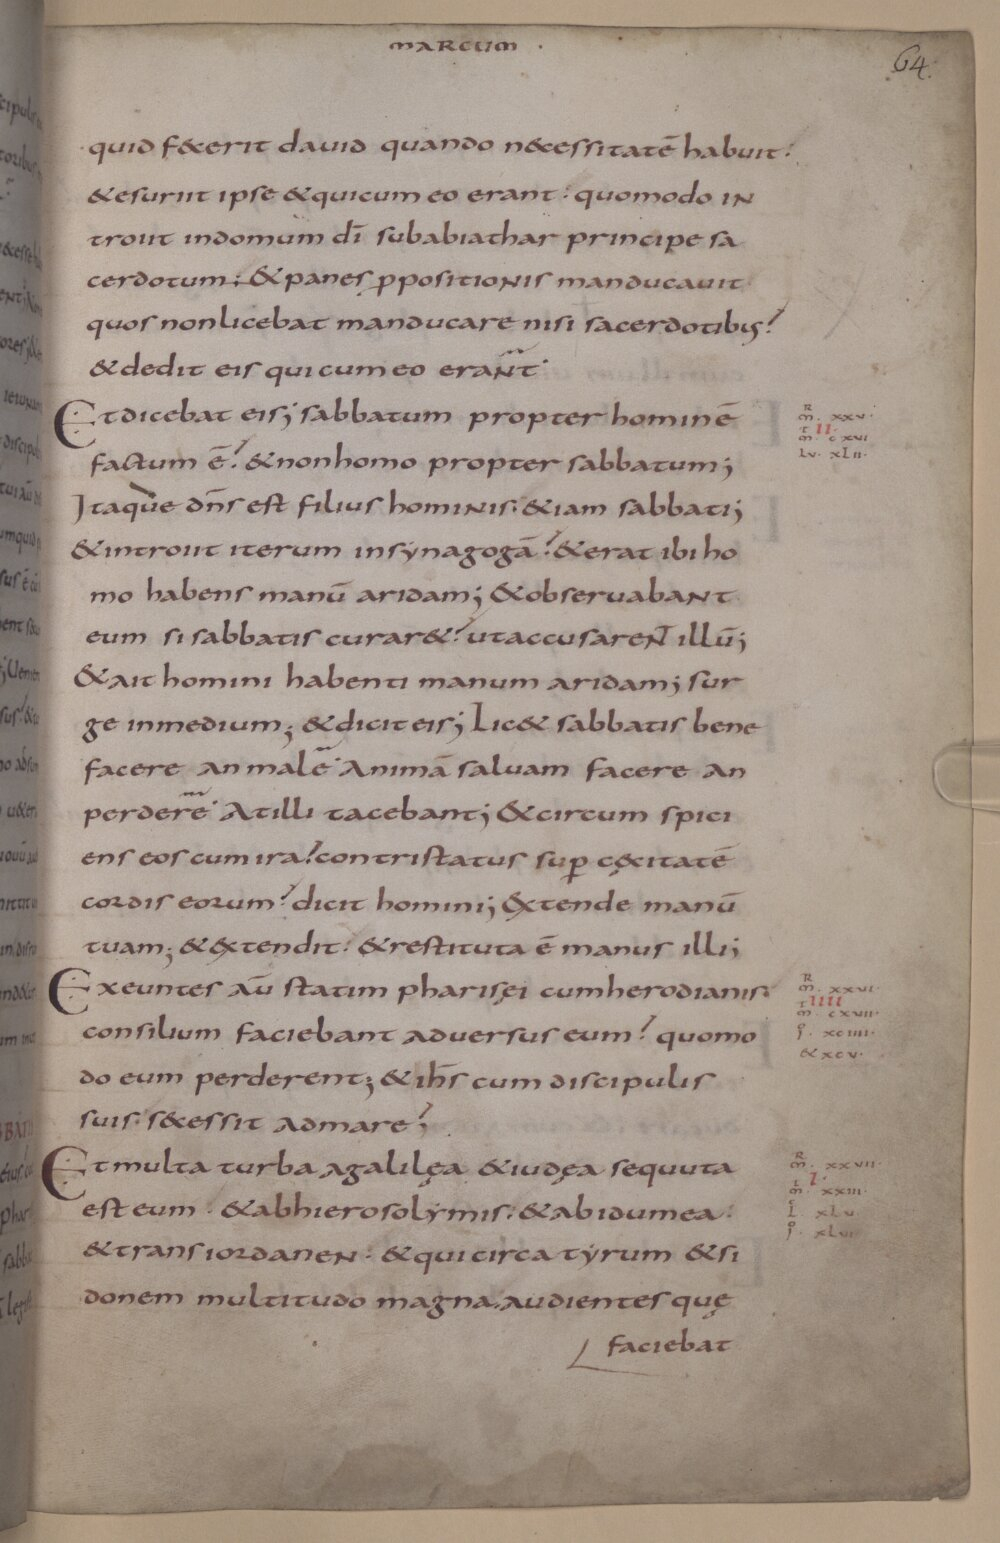 MARCUM ·
64.
quid f&erit dauid quando n&essitatē habuit:
& esuriit ipse & qui cum eo erant: quomodo in
troiit indomum dī sub abiathar principe sa
cerdotum; & panes ꝓpositionis manducauit
quos non licebat manducare nisi sacerdotibus?
& dedit eis qui cum eo erant.
Et dicebat eis; sabbatum propter hominē
factum ē? & non homo propter sabbatum;
Itaque dn̄s est filius hominis: & iam sabbati;
& introiit iterum in synagogā? & erat ibi ho
mo habens manū aridam; & obseruabant
eum si sabbatis curar&? ut accusarent illū;
& ait homini habenti manum aridam; sur
ge inmedium; & dicit eis; Lic& sabbatis bene
facere an male Animā saluam facere an
perdere Atilli tacebant; & circum spici
ens eos cum ira? contristatus suꝑ cęcitatē
cordis eorum? dicit homini; Extende manū
tuam; & extendit. & restituta ē manus illi;
Exeuntes aū statim pharisęi cum herodianis.
consilium faciebant aduersus eum? quomo
do eum perderent; & ih̄s cum discipulis
suis. secessit admare?
Et multa turba agalilęa & iudęa sequuta
est eum. & abhierosolymis: & ab idumea.
& trans iordanen. & qui circa tyrum & si
donem multitudo magna. audientes quę
faciebat
R
m. xxv.
II
m. cxvi
Lv. xLii.
R
m. xxvi.
IIII
m. cxvii.
xciiii.
& xcv.
R
m. xxvii.
I.
m. xxiii.
L. xLv.
xLvi